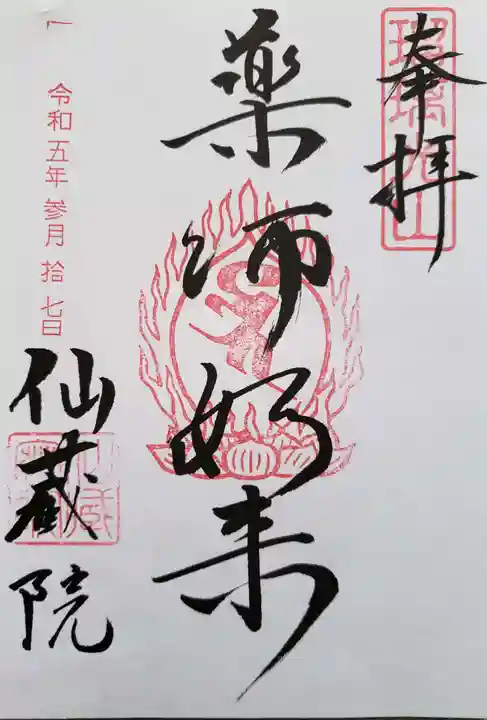 奉拝
瑠璃光山
薬師如来
令和五年参月拾七日
仙蔵院